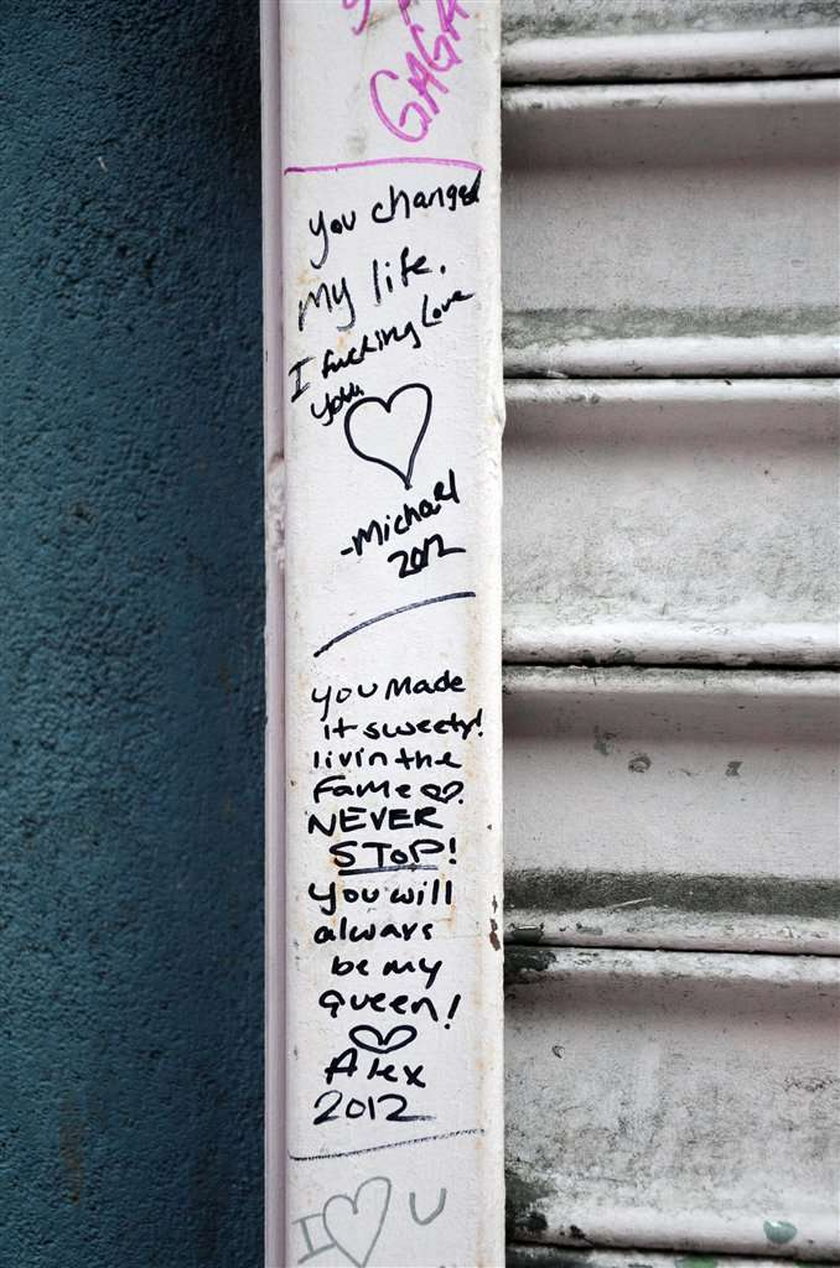 GAGA
you changed
my life.
I fucking Love
you.
-Michael
2012
you made
it sweety!
livin the
fame
NEVER
STOP!
you will
always
be my
queen!
Alex
2012
I U